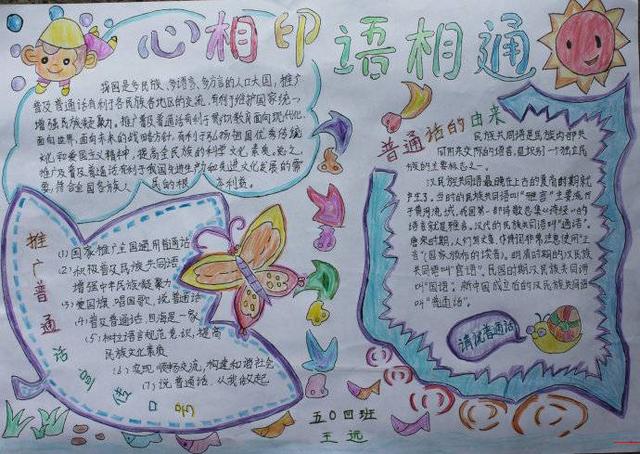 心相印 语相通
我国是多民族、多语言、多方言的人口大国,推广
普及普通话有利于各民族各地区的交流,有利于维护国家统一
增强民族凝聚力。推广普及普通话有利于贯彻教育面向现代化,
面向世界,面向未来的战略方针,有利于弘扬祖国优秀传统
文化和爱国主义精神,提高全民族的科学文化素质。总之,
推广及普通话有利于我国先进生产力和先进文化发展的需
要,符合全国各族人民的根 利益。
推广普通话宣传口号
(1)国家推广全国通用普通话
(2)积极普及民族共同语
增强中华民族凝聚力
(3)爱国旗,唱国歌,说普通话
(4)普及普通话,四海是一家
(5)树立语言规范意识,提高
民族文化素质
(6)实现顺畅交流,构建和谐社会
(7)说普通话,从我做起
普通话的由来
民族共同语是民族内部共
同用来交际的语言,是识别一个独立民
族的主要标志之一。
汉民族共同语最晚在上古的夏商时期就
产生了,当时的民族共同语叫“雅言”主要流行
于黄河流域,我国第一部诗歌总集《诗经》的
语言就是雅言。汉代的民族共同语叫“通语”。
唐宋时期,人们写文章、作诗词非常注意使用“正
音”(国家颁布的读音)。明清时期的汉民族
共同语叫“官话”。民国时期汉民族共同语叫
“国语”。新中国成立后的汉民族共同语
叫“普通话”。
请说普通话
五0四班
王远